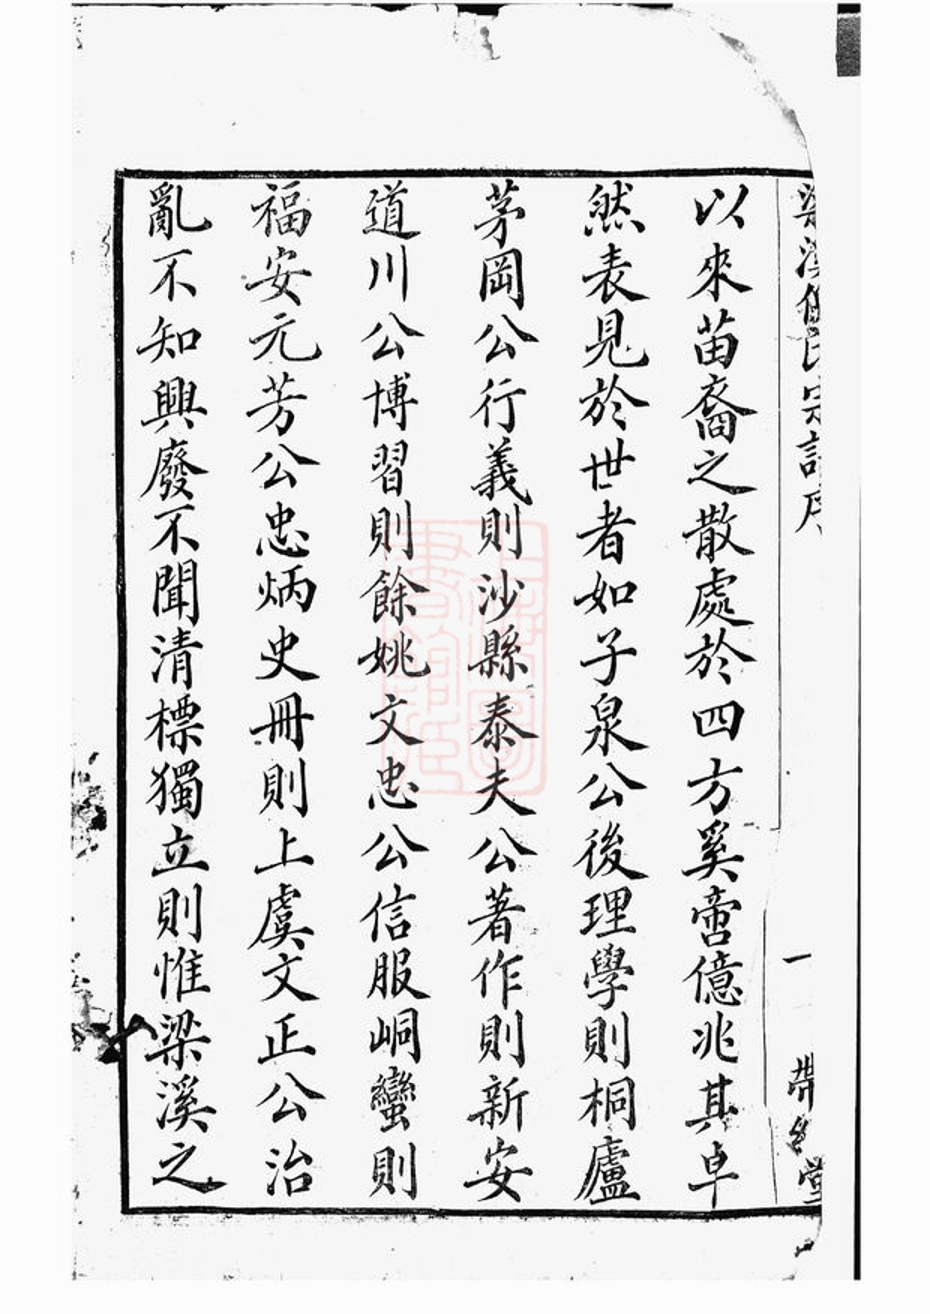 梁溪倪氏宗譜序
一
帶經堂
以來苗裔之散處於四方奚啻億兆其卓
然表見於世者如子泉公後理學則桐廬
茅岡公行義則沙縣泰夫公著作則新安
道川公博習則餘姚文忠公信服峒蠻則
福安元芳公忠炳史冊則上虞文正公治
亂不知興廢不聞清標獨立則惟梁溪之